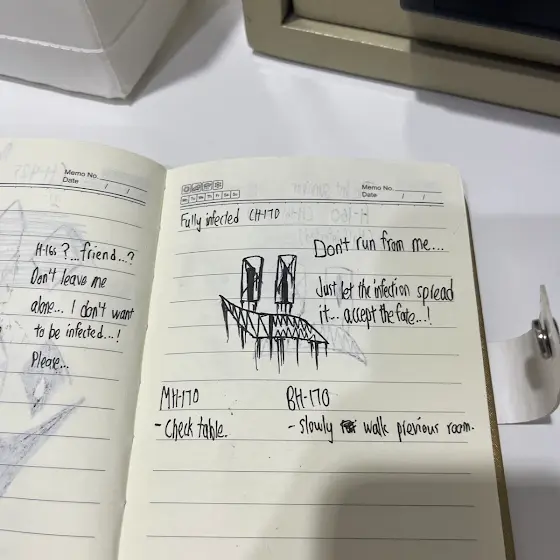 Memo No.
Date / /
H-166 ?...friend...?
Don't leave me
alone... I don't want
to be infected...!
Please...
Mo Tu We Th Fr Sa Su
Memo No.
Date / /
Fully infected CH-170
Don't run from me...
Just let the infection spread
it... accept the fate...!
MH-170
- Check table.
BH-170
- slowly walk previous room.